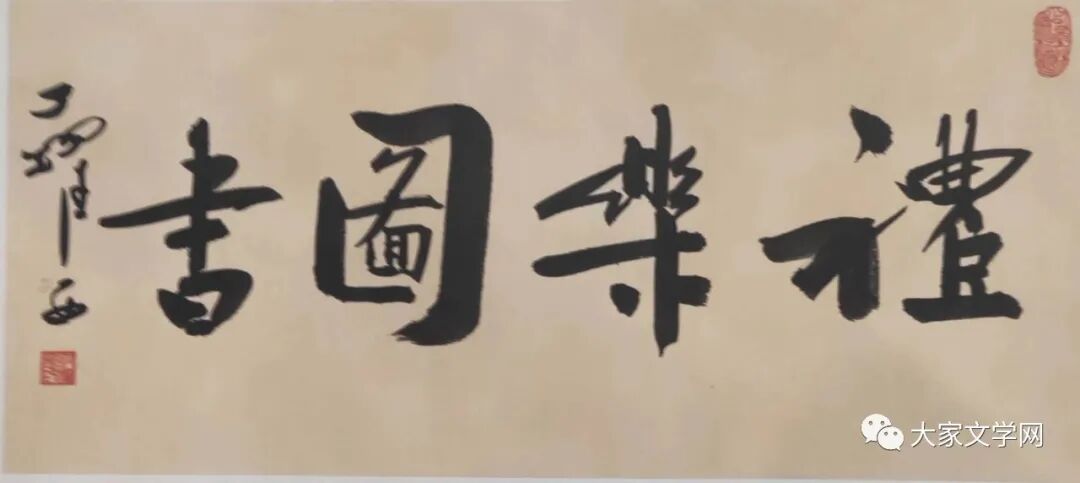 禮樂圖書
大家文学网